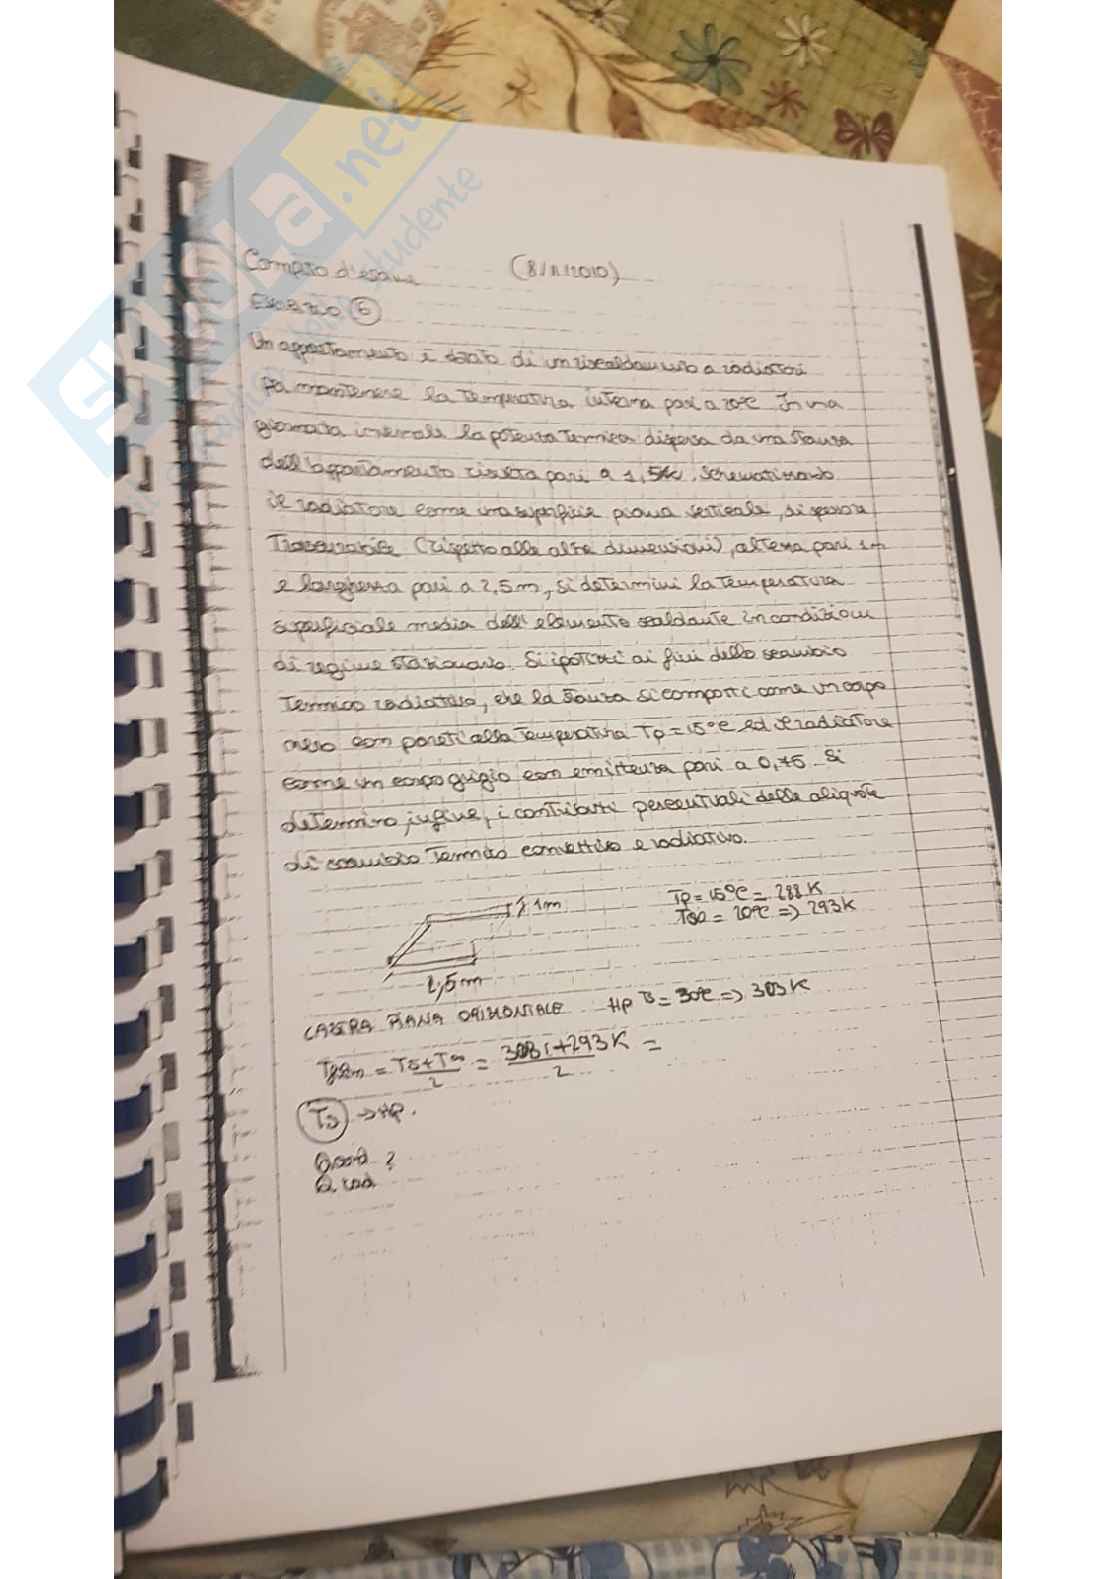 SKUOLA.net
Compito d'esame (8/11/2010)
Esercizio 6
Un appartamento è dotato di un riscaldamento a radiatori
per mantenere la temperatura interna pari a 20°C In una
giornata invernale la potenza termica dispersa da una stanza
dell'appartamento risulta pari a 1,5 kW. Schematizzando
il radiatore come una superficie piana verticale, di spessore
Trascurabile (rispetto alle altre dimensioni), altezza pari 1m
e larghezza pari a 2,5m, si determini la temperatura
superficiale media dell'elemento scaldante in condizioni
di regime stazionario. Si ipotizzi ai fini dello scambio
Termico radiativo, che la stanza si comporti come un corpo
nero con pareti alla temperatura Tp = 15°C ed il radiatore
come un corpo grigio con emittenza pari a 0,75. Si
determino, infine, i contributi percentuali delle aliquote
di scambio Termico convettivo e radiativo.
1m Tp = 15°C = 288 K
T∞ = 20°C => 293K
2,5m
LASTRA PIANA ORIZZONTALE HP Ts = 30°C => 303K
Tfilm = Ts + T∞ / 2 = 303 + 293K / 2 =
Ts -> HP.
Qcond ?
Qrad